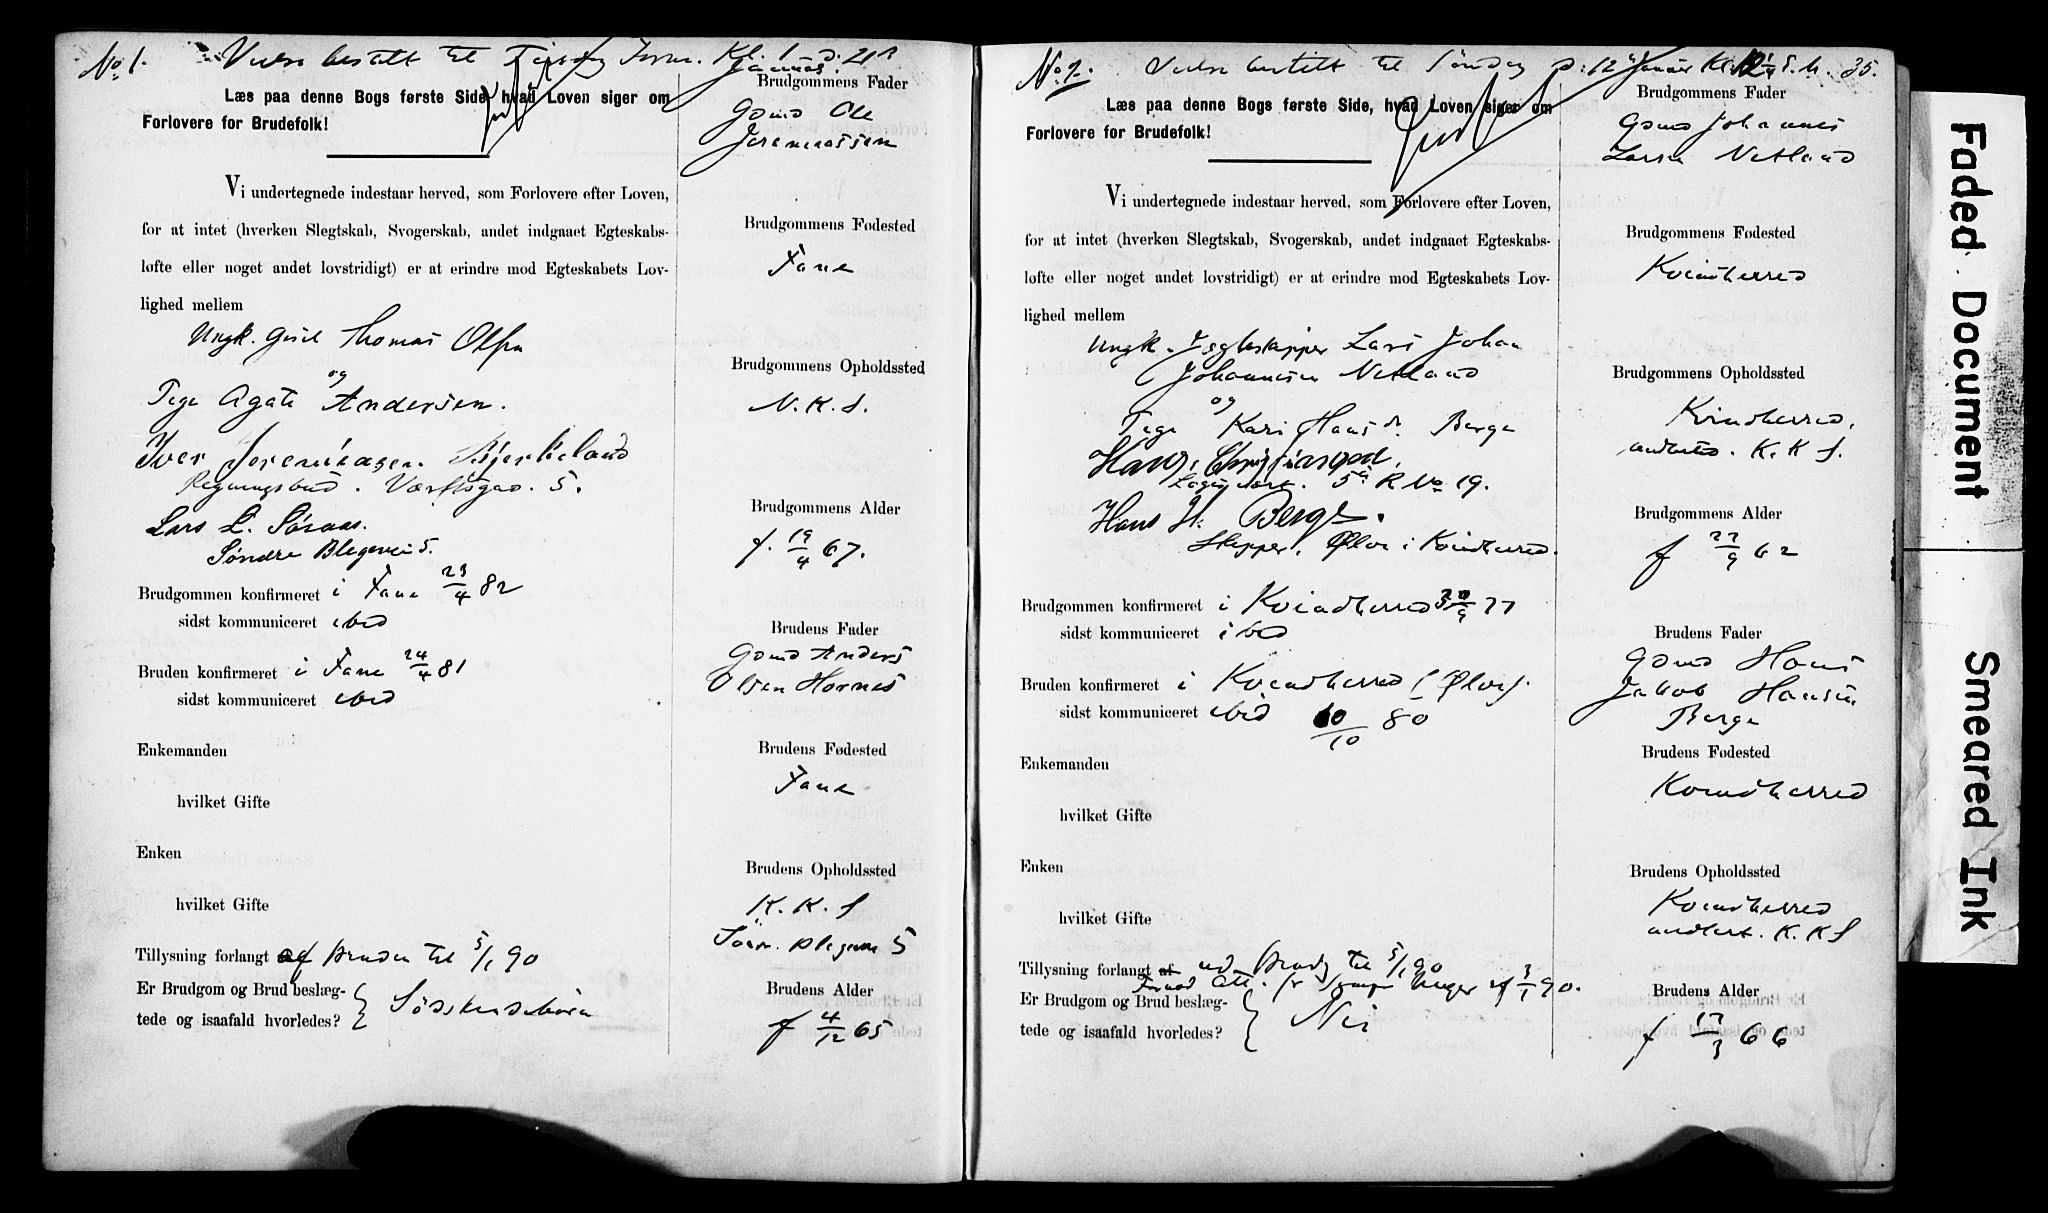 No 1. Vielse bestilt til Tirsdag Form. Kl. 1 d. 21
Januar.
Læs paa denne Bogs første Side, hvad Loven siger om
Forlovere for Brudefolk!
Vi undertegnede indestaar herved, som Forlovere efter Loven,
for at intet (hverken Slegtskab, Svogerskab, andet indgaaet Egteskabs-
løfte eller noget andet lovstridigt) er at erindre mod Egteskabets Lov-
lighed mellem
Ungk. Thomas Olsen
og
Pige Agate Andersen.
Iver Jeremiasen Bjerkeland
Regningsbud. Værftsgad. 5.
Lars L. Søraas.
Søndre Blegevei 5.
Brudgommen konfirmeret i Fane 23/4 82
sidst kommuniceret ibid
Bruden konfirmeret i Fane 24/4 81
sidst kommuniceret ibid
Enkemanden
hvilket Gifte
Enken
hvilket Gifte
Tillysning forlangt af Bruden til 5/1 90
Er Brudgom og Brud beslæg-
tede og isaafald hvorledes? Södskendebörn
Brudgommens Fader
Gdmd Ole
Jeremiassen
Brudgommens Fødested
Fane
Brudgommens Opholdssted
N. K. S.
Brudgommens Alder
f. 19/4 67.
Brudens Fader
Gdmd Anders
Olsen Hornes
Brudens Fødested
Fane
Brudens Opholdssted
K. K. S
Blegevei 5
Brudens Alder
f 4/12 65
No 2. Vielse bestilt til Søndag d: 12 Januar Kl. 12 1/4 E. M. 35.
Læs paa denne Bogs første Side, hvad Loven siger om
Forlovere for Brudefolk!
Vi undertegnede indestaar herved, som Forlovere efter Loven,
for at intet (hverken Slegtskab, Svogerskab, andet indgaaet Egteskabs-
løfte eller noget andet lovstridigt) er at erindre mod Egteskabets Lov-
lighed mellem
Ungk. Jagteskipper Lars Johan
Johannesen Netland
og
Pige Kari Hansdr. Berge
Hans Christiansen,
5te R No 19.
Hans H. Berge.
Skipper, Ølve i Kvindherred.
Brudgommen konfirmeret i Kvindherred 30/9 77
sidst kommuniceret ibid
Bruden konfirmeret i Kvindherred (Ølve).
sidst kommuniceret ibid 10/10 80
Enkemanden
hvilket Gifte
Enken
hvilket Gifte
Tillysning forlangt af ved Brudg til 5/1 90
Att. for Uager af 3/1 90.
Er Brudgom og Brud beslæg-
tede og isaafald hvorledes? Nei
Brudgommens Fader
Gdmd Johannes
Larsen Netland
Brudgommens Fødested
Kvindherred
Brudgommens Opholdssted
Kvindherred,
K. K S.
Brudgommens Alder
f 27/9 62
Brudens Fader
Gdmd Hans
Jakob Hansen
Berge
Brudens Fødested
Kvindherred
Brudens Opholdssted
Kvindherred
K. K S
Brudens Alder
f 17/3 66
Faded Document
Smeared Ink